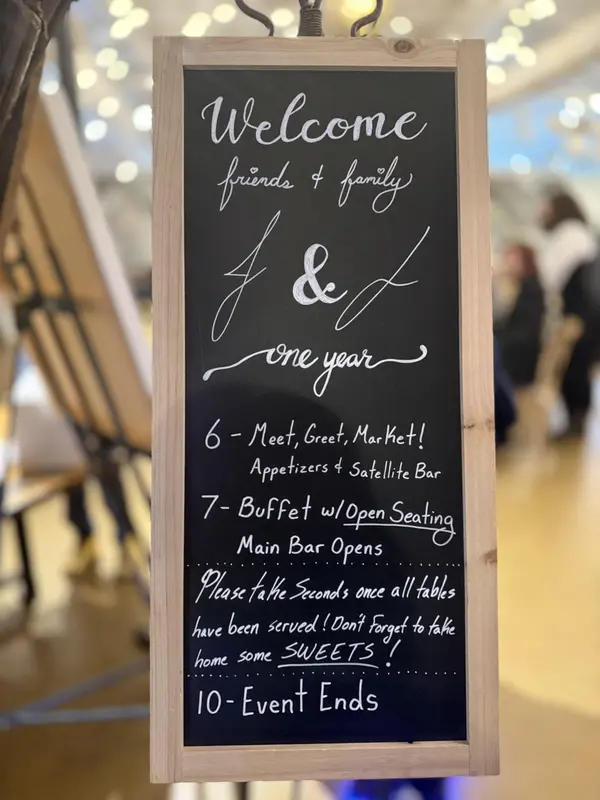 Welcome
friends & family
J & L
one year
6 - Meet, Greet, Market!
Appetizers & Satellite Bar
7- Buffet w/Open Seating
Main Bar Opens
Please take Seconds once all tables
have been served! Don't Forget to take
home some SWEETS!
10- Event Ends